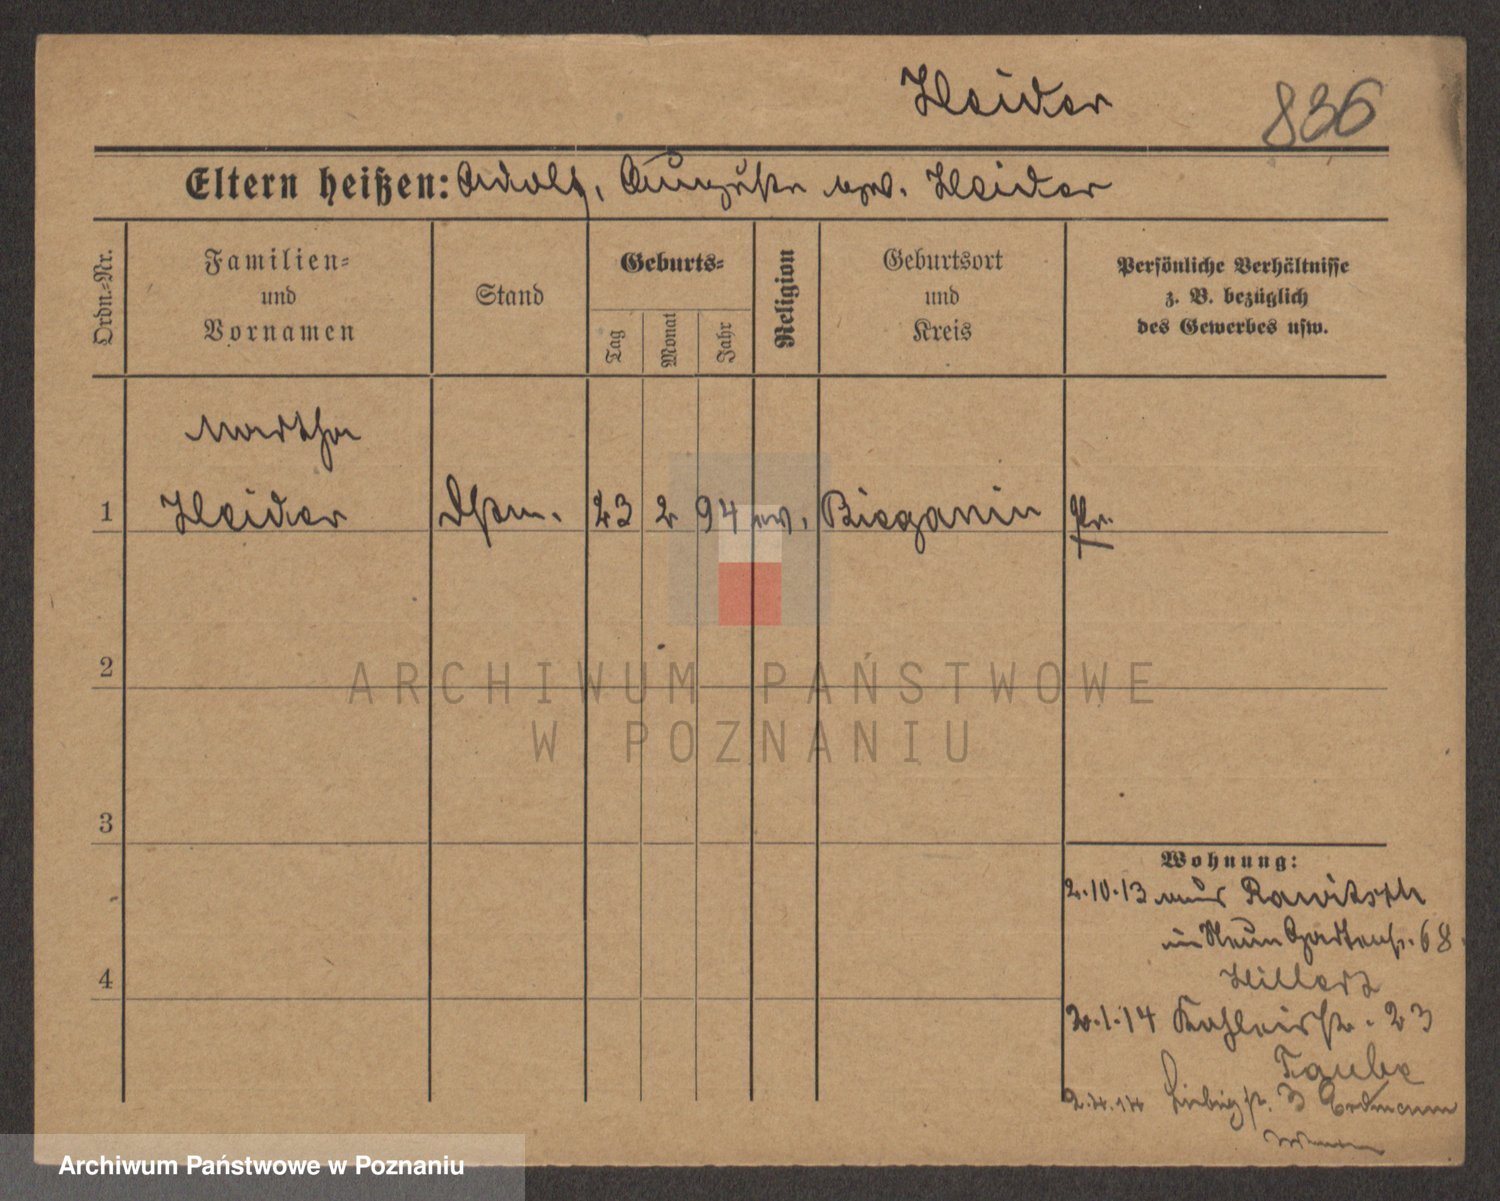 Heider 836
Eltern heißen: Adolf, Auguste geb. Heider
Ordn.-Nr.
Familien-
und
Vornamen
Stand
Geburts-
Tag
Monat
Jahr
Religion
Geburtsort
und
Kreis
Persönliche Verhältnisse
z. B. bezüglich
des Gewerbes usw.
Martha
1 Heider Dstm. 23 2 94 ev. Bieganin Pr.
2
3
4
Wohnung:
2.10.13 aus Rawitsch
Neue Gartenstr. 68
Hillert
20.1.14 23
Taube
2.4.14 Liebigstr. 3 Erdmann
ARCHIWUM PAŃSTWOWE
W POZNANIU
Archiwum Państwowe w Poznaniu